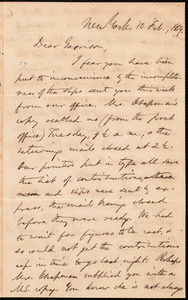 New York, 10 Feb., 1859.
Dear Garrison,
I fear you have been
put to inconvenience by the incomplete-
ness of the slips sent you this week
from our office. Mrs. Chapman's
copy reached me (from the post
office) Tuesday, 9½ a.m., & the
returning mails closed at 2½.
Our printer had in type all save
the list of contributions, &
some slips were sent by ex-
press, the mail having closed
before they were ready. We had
to wait for figures to be cast, &
so could not get the contributions
in time to go last night. Perhaps
Mrs. Chapman supplied you with a
MS. copy. You know she is not always